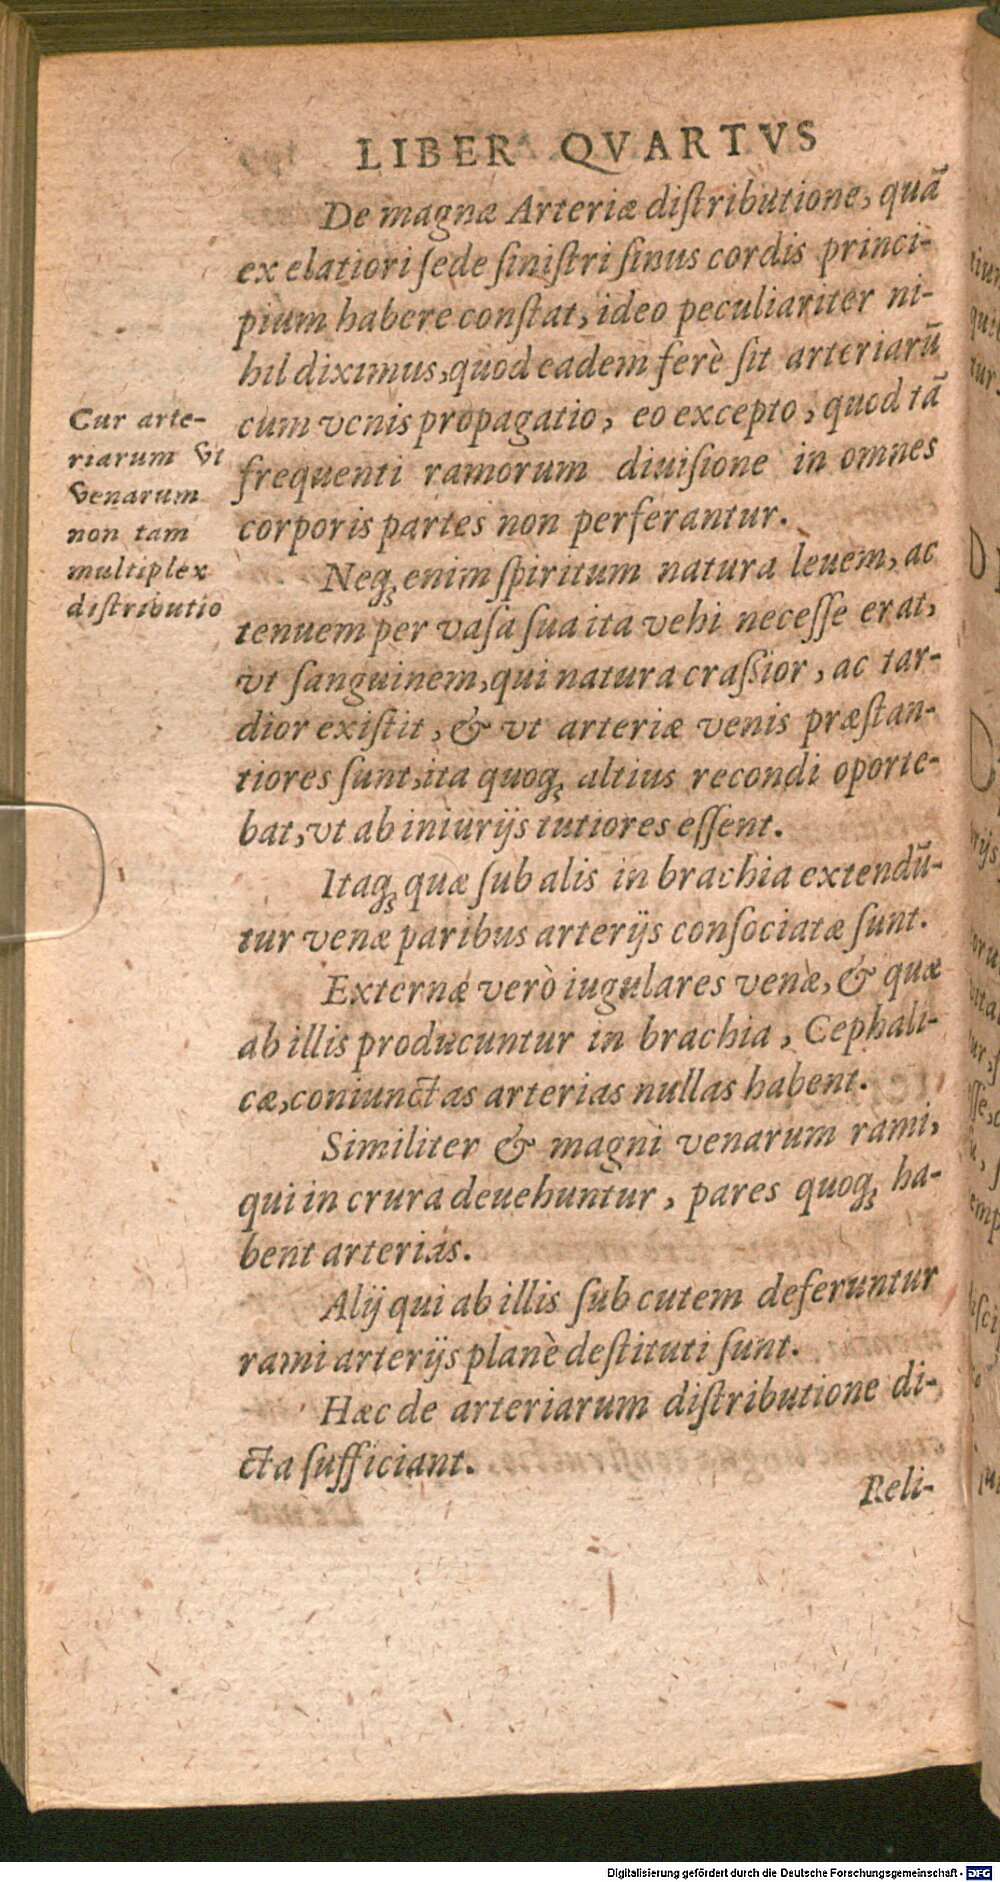 LIBER QVARTVS
De magnæ Arteriæ diſtributione, quā
ex elatiori ſede ſiniſtri ſinus cordis princi-
pium habere conſtat, ideo peculiariter ni-
hil diximus, quod eadem ferè ſit arteriarū
cum venis propagatio, eo excepto, quod tā
frequenti ramorum diuiſione in omnes
corporis partes non perferantur.
Cur arte-
riarum vt
venarum
non tam
multiplex
diſtributio
Neqꝫ enim ſpiritum natura leuem, ac
tenuem per vaſa ſua ita vehi neceſſe erat,
vt ſanguinem, qui natura craſsior, ac tar-
dior exiſtit, & vt arteriæ venis præſtan-
tiores ſunt, ita quoqꝫ altius recondi oporte-
bat, vt ab iniurijs tutiores eſſent.
Itaqꝫ quæ ſub alis in brachia extendū-
tur venæ paribus arterijs conſociatæ ſunt.
Externæ verò iugulares venæ, & quæ
ab illis producuntur in brachia, Cephali-
cæ, coniunctas arterias nullas habent.
Similiter & magni venarum rami,
qui in crura deuehuntur, pares quoqꝫ ha-
bent arterias.
Alij qui ab illis ſub cutem deferuntur
rami arterijs planè deſtituti ſunt.
Hæc de arteriarum diſtributione di-
cta ſufficiant.
Reli-
Digitalisierung gefördert durch die Deutsche Forschungsgemeinschaft - DFG